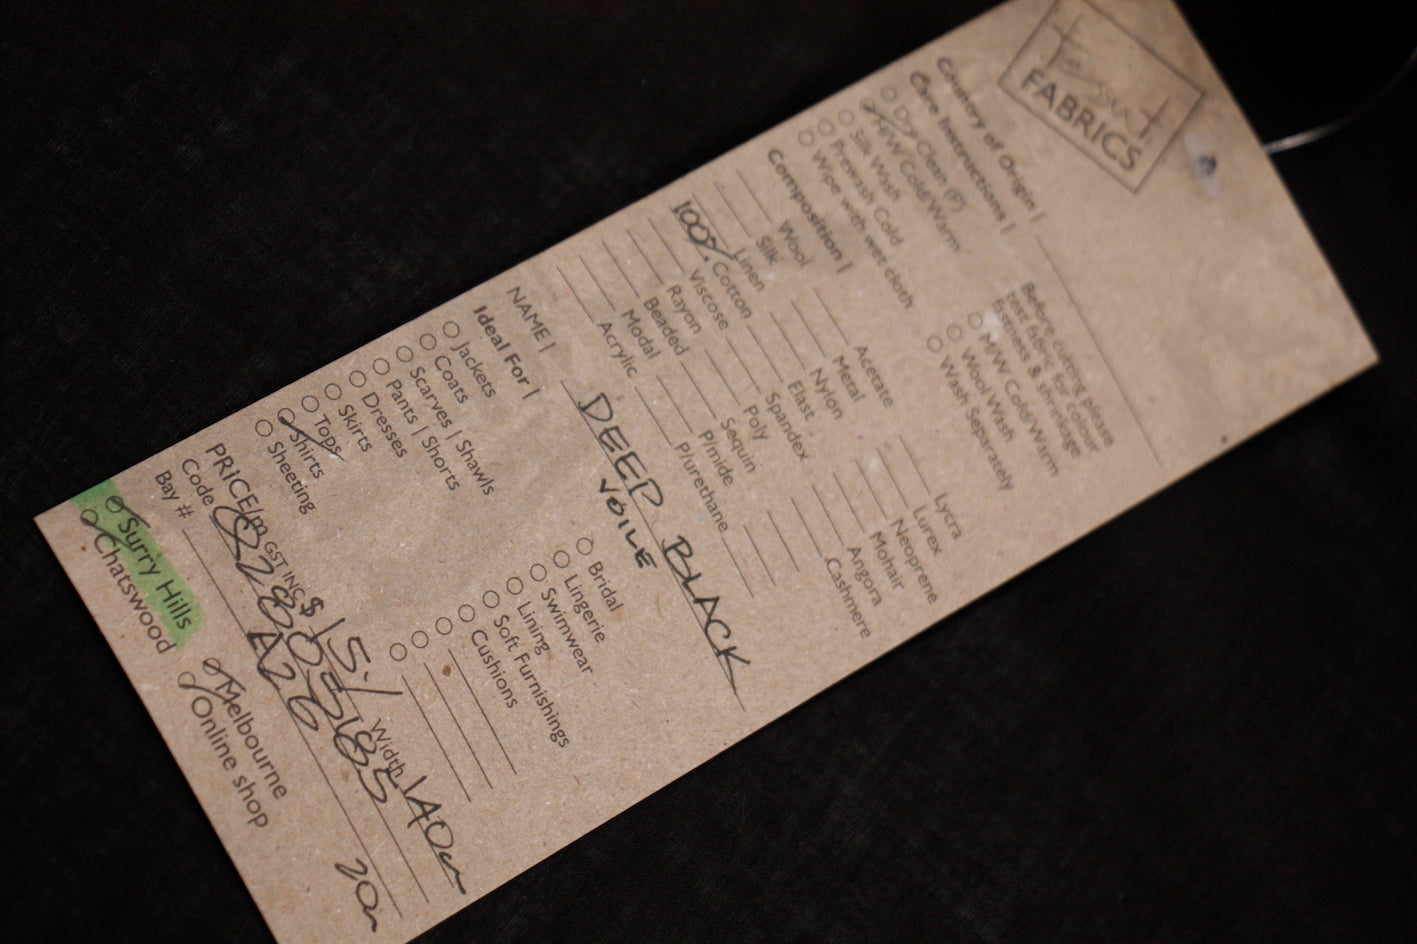 FABRICS
Country of Origin |
Care Instructions |
Dry Clean (P)
H/W Cold/Warm
Silk Wash
Prewash Cold
Wipe with wet cloth
Before cutting please
test fabric for colour
fastness & shrinkage
M/W Cold/Warm
Wool Wash
Wash Separately
Composition |
Wool Acetate Lycra
Silk Metal Lurex
Linen Nylon Neoprene
100% Cotton Elast Mohair
Viscose Spandex Angora
Rayon Poly Cashmere
Beaded Sequin
Modal P/mide
Acrylic P/urethane
NAME | DEEP BLACK
VOILE
Ideal For |
Jackets Bridal
Coats Lingerie
Scarves | Shawls Swimwear
Pants | Shorts Lining
Dresses Soft Furnishings
Skirts Cushions
Tops
Shirts
Sheeting
PRICE/m GST INC $ 15./ Width 140cm
Code
Bay # A26 20m
Surry Hills Melbourne
Chatswood Online shop